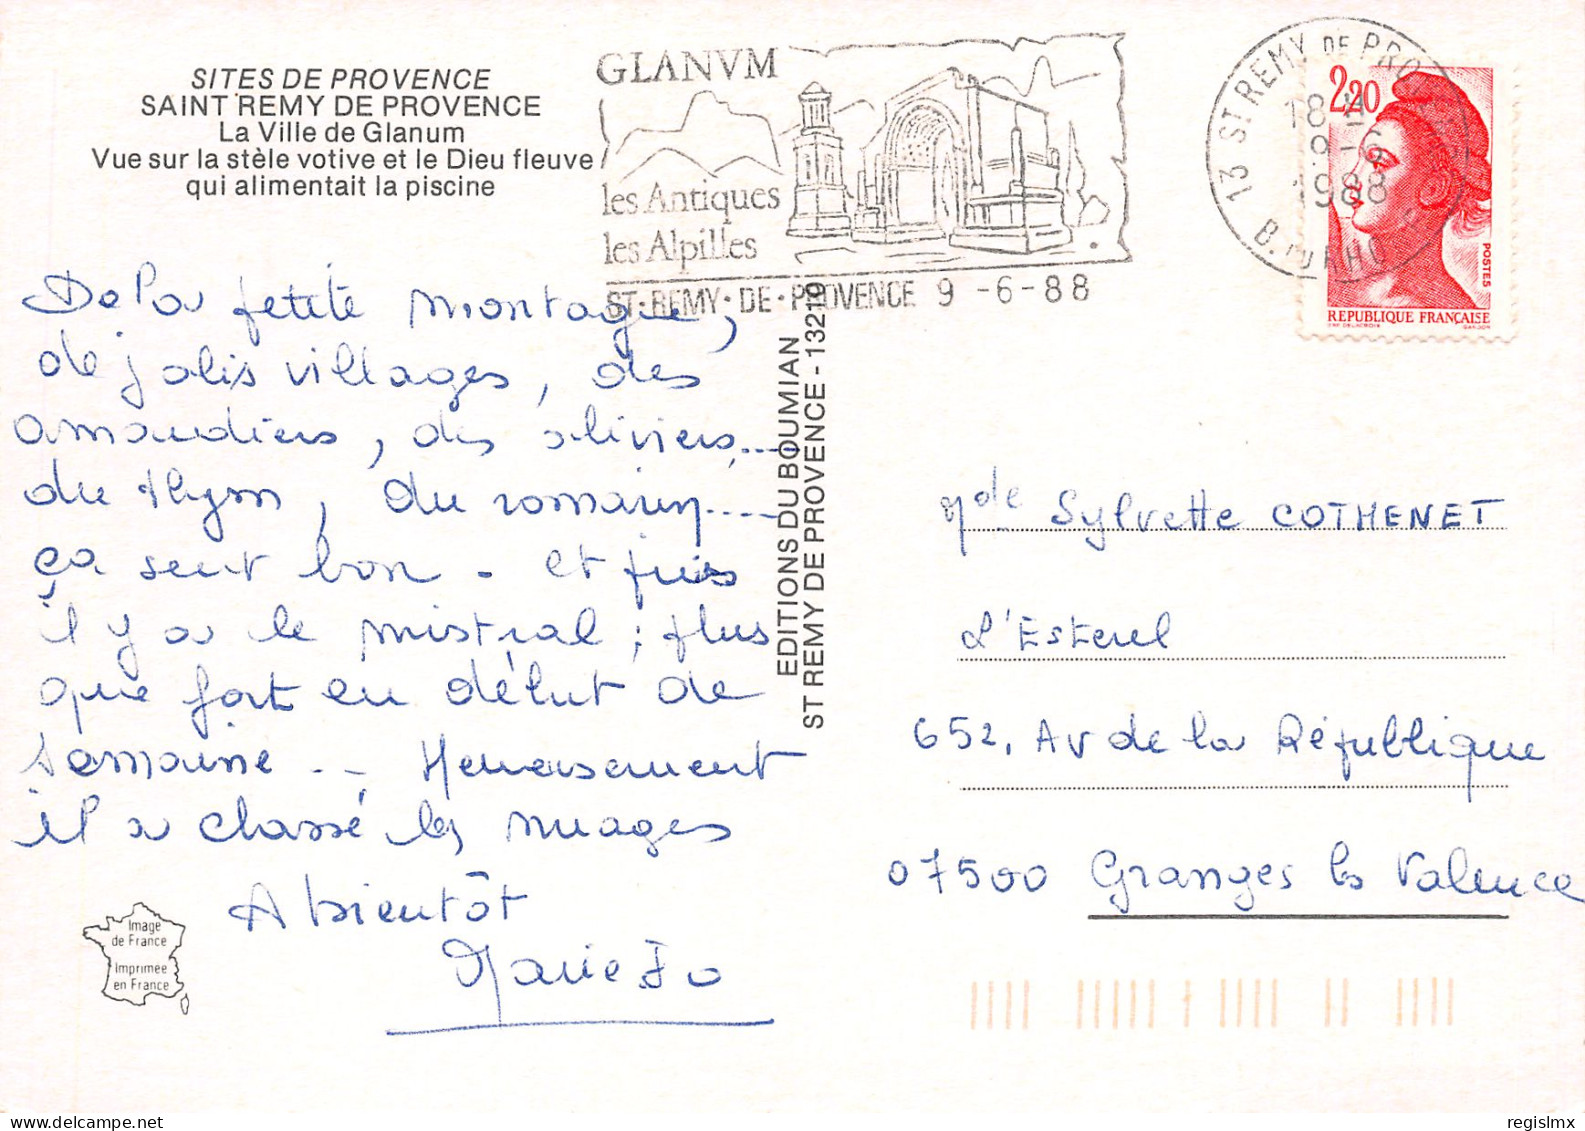 SITES DE PROVENCE
SAINT REMY DE PROVENCE
La Ville de Glanum
Vue sur la stèle votive et le Dieu fleuve
qui alimentait la piscine
GLANVM
les Antiques
les Alpilles
ST·REMY·DE·PROVENCE 9 -6-88
13 ST REMY DE PROVENCE
18 H
9-6
1988
B. DU RHO
2,20
POSTES
REPUBLIQUE FRANÇAISE
De la petite montagne,
de jolis villages, des
amandiers, des oliviers....
du thym, du romarin....
ça sent bon - et puis
il y a le mistral ; plus
que fort en début de
semaine ... Heureusement
il a chassé les nuages
A bientôt
Marie Jo
EDITIONS DU BOUMIAN
ST REMY DE PROVENCE - 13210
Mde Sylvette COTHENET
L'Esterel
652, Av de la République
07500 Granges les Valence
Image
de France
Imprimée
en France
regislmx
delcampe.net